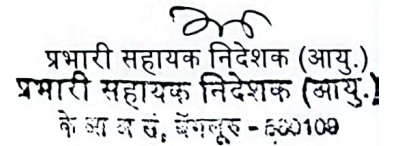 प्रभारी सहायक निदेशक (आयु.)
प्रभारी सहायक निदेशक (आयु.)
के आ अ सं, बेंगलूरु - 560109